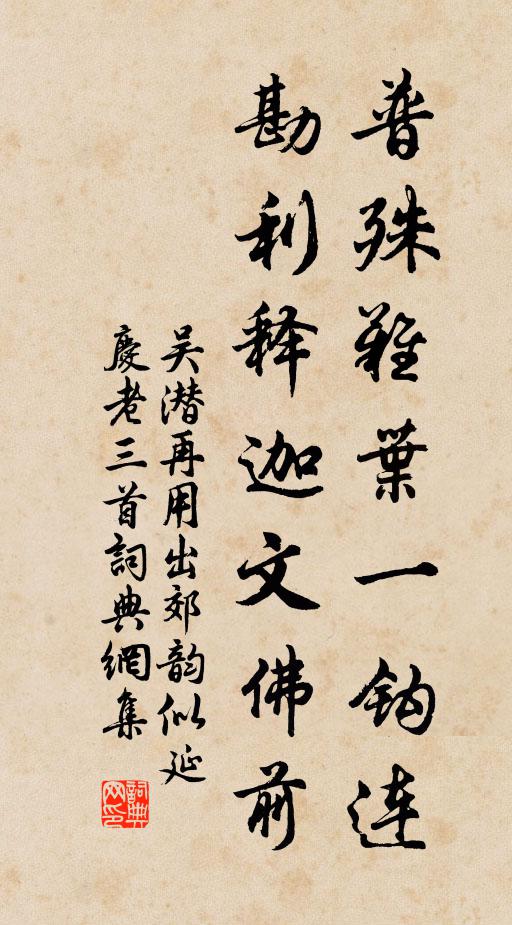 普殊难葉一钩连
勘利释迦文佛前
吴潜再用出郊韵似延
慶老三首詞典網集
詞典网印